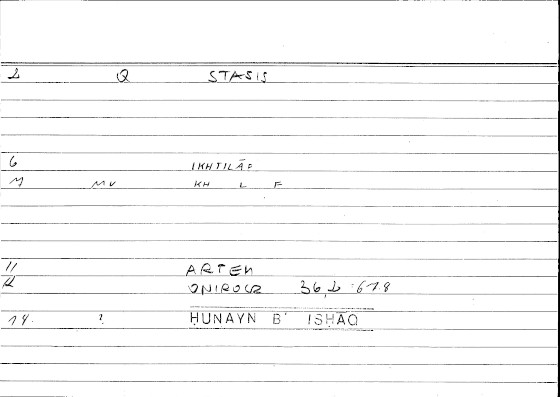 2 Q STASIS
6 IKHTILĀF
M MV KH L F
11 ARTEM
12 ONIROCR 36,2 - 67.8
14. ? ḤUNAYN B' ISḤĀQ